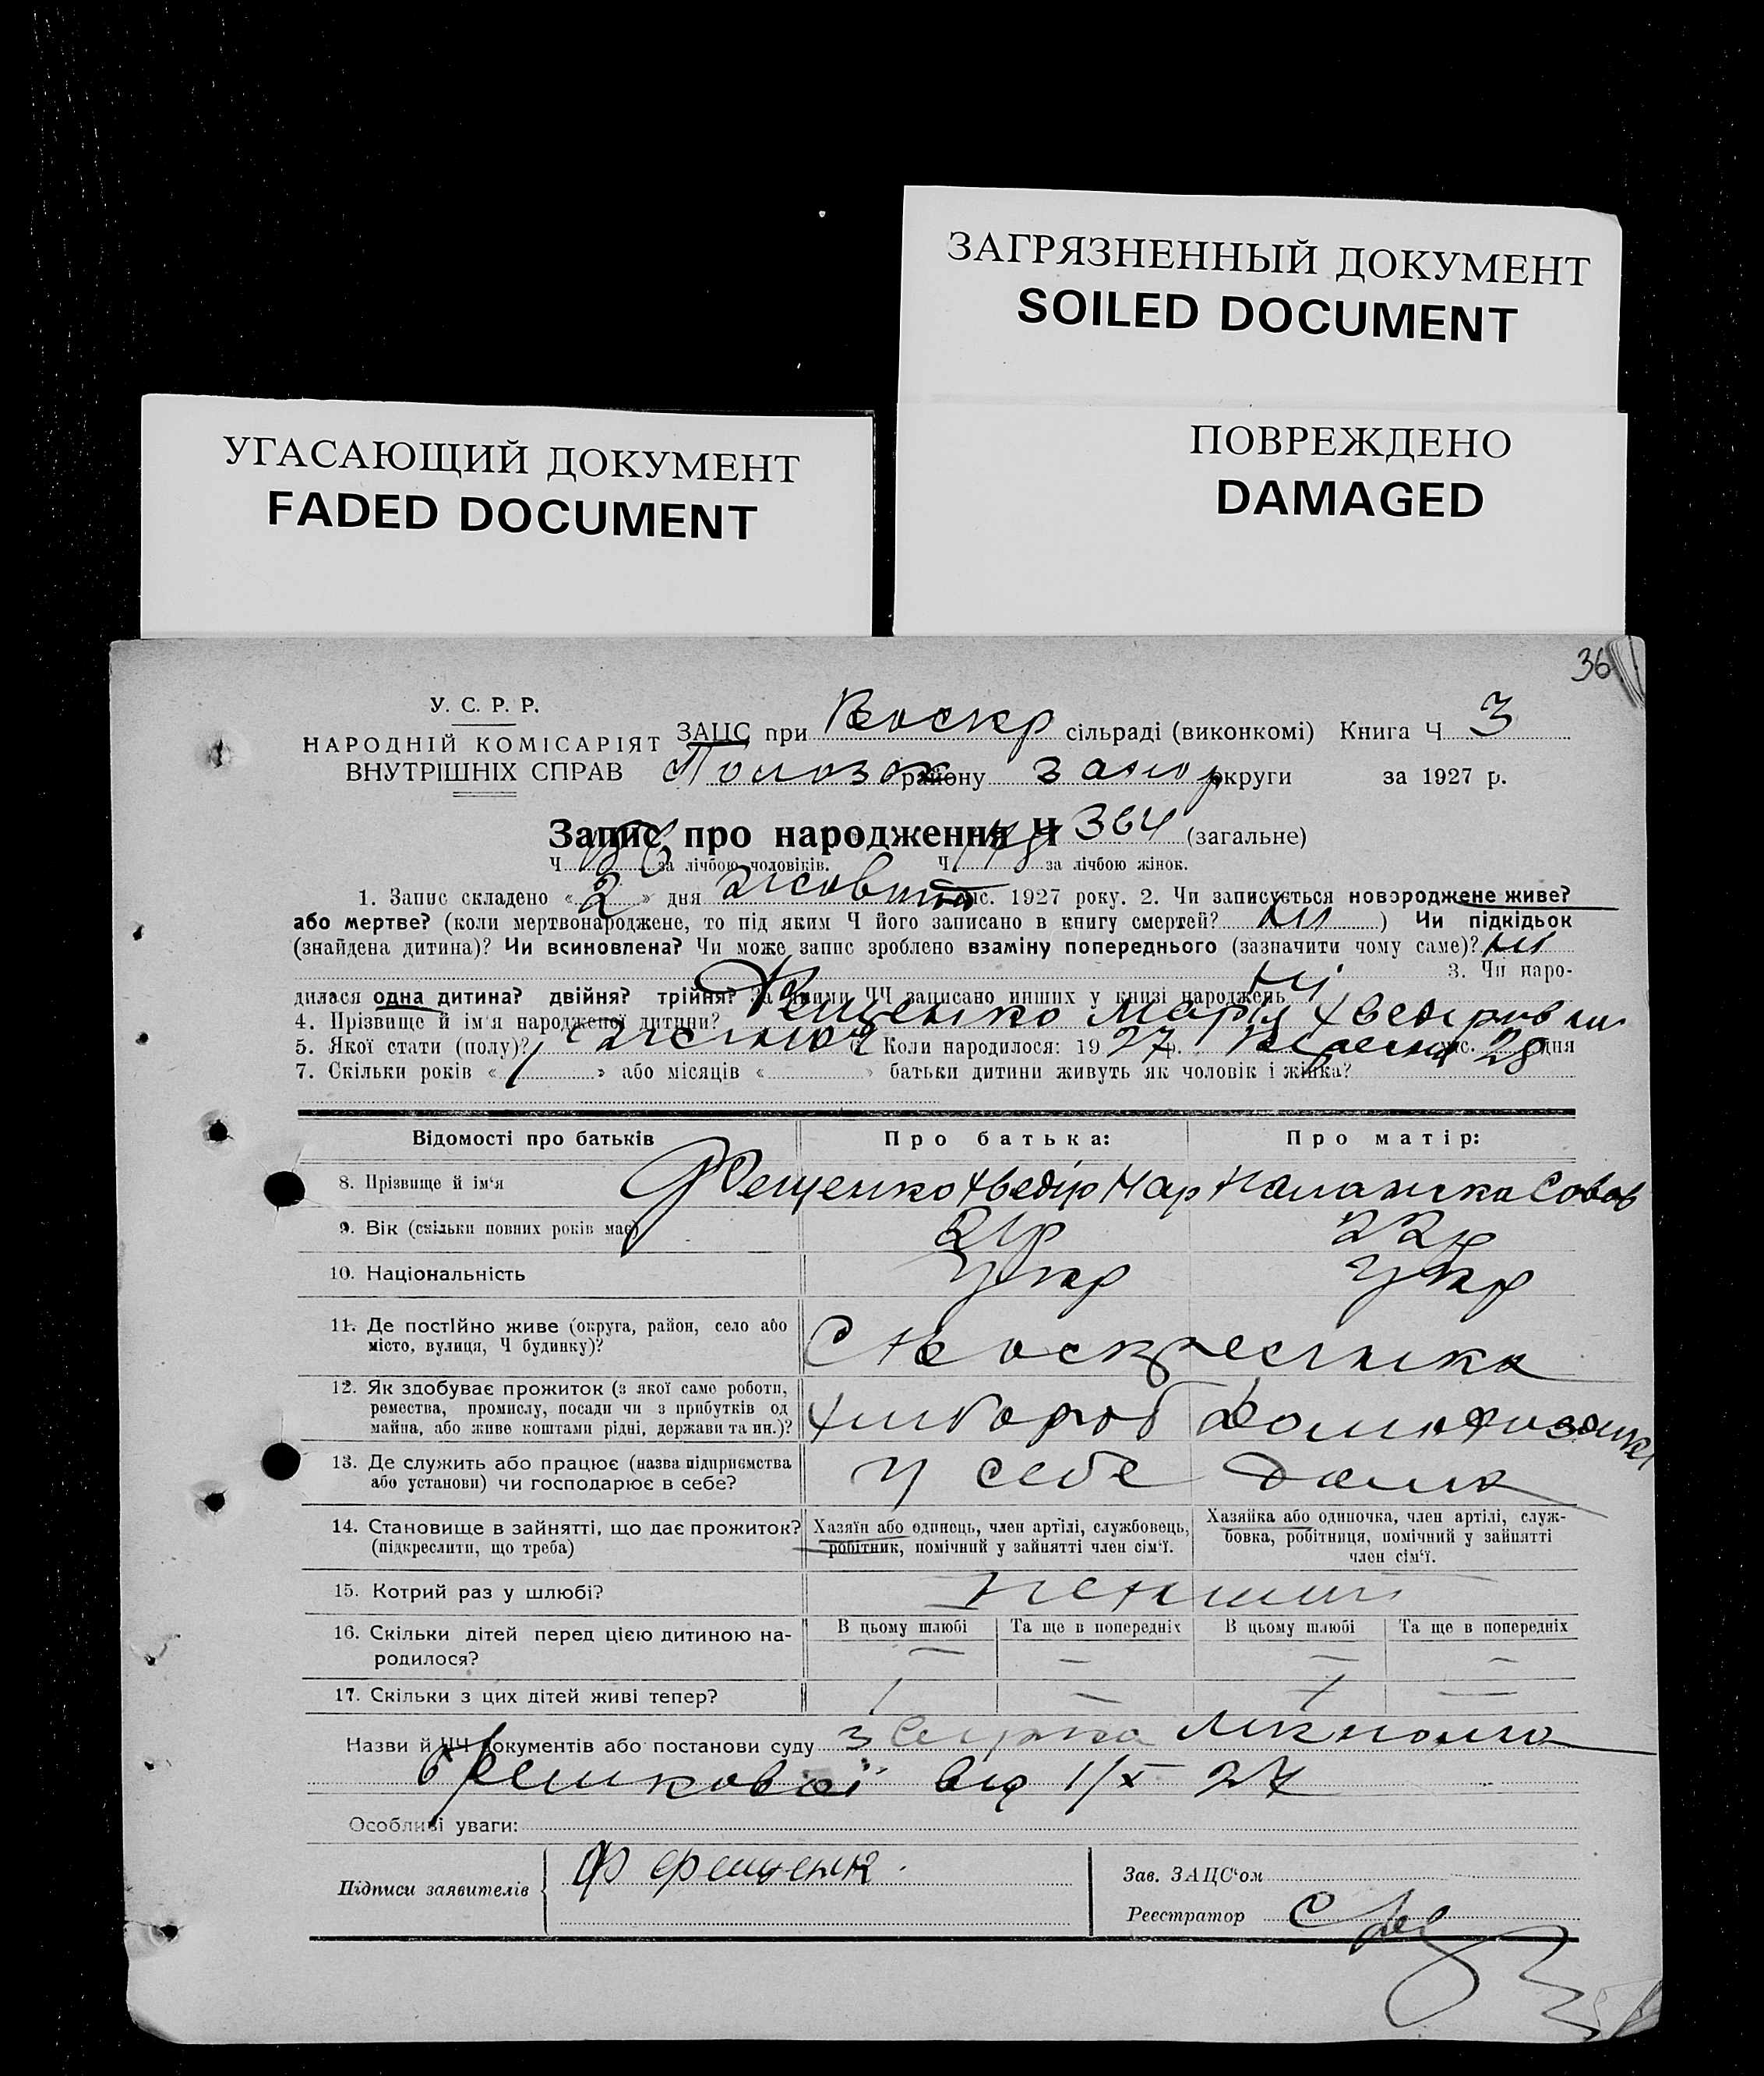 ЗАГРЯЗНЕННЫЙ ДОКУМЕНТ
SOILED DOCUMENT
УГАСАЮЩИЙ ДОКУМЕНТ
FADED DOCUMENT
ПОВРЕЖДЕНО
DAMAGED
36
У. С. Р. Р.
НАРОДНІЙ КОМІСАРІЯТ
ВНУТРІШНІХ СПРАВ
ЗАЦС при Воскр сільраді (виконкомі) Книга Ч 3
району Запор округи за 1927 р.
Запис про народження Ч 364 (загальне)
Ч за лічбою чоловіків. Ч за лічбою жінок.
1. Запис складено «2» дня Жовтня міс. 1927 року. 2. Чи записується новэроджене живе?
або мертве? (коли мертвонароджене, то під яким Ч його записано в книгу смертей? ні ) Чи підкідьок
(знайдена дитина)? Чи всиновлена? Чи може запис зроблено взаміну попереднього (зазначити чому саме)? ні
3. Чи наро-
дилася одна дитина? двійня? трійня? За якими ЧЧ записано инших у книзі народжень ні
4. Прізвище й ім'я народженої дитини? Рещенко Марія Хведоровна
5. Якої стати (полу)? жіночої 6. Коли народилося: 1927 р. Вересня міс. 28 дня
7. Скільки років «1» або місяців « » батьки дитини живуть як чоловік і жінка?
Відомості про батьків Про батька: Про матір:
8. Прізвище й ім'я Рещенко Хведір Мар Палажка Савов
9. Вік (скільки повних років має) 21р 22р
10. Національність Укр Укр
11. Де постійно живе (округа, район, село або
місто, вулиця, Ч будинку)?
С Воскресінка
12. Як здобуває прожиток (з якої саме роботи,
ремества, промислу, посади чи з прибутків од
майна, або живе коштами рідні, держави та ин.)?
Хлібороб
13. Де служить або працює (назва підприємства
або установи) чи господарює в себе?
У себе дома
14. Становище в зайнятті, що дає прожиток?
(підкреслити, що треба)
Хазяїн або одинець, член артілі, службовець,
робітник, помічний у зайнятті член сім'ї.
Хазяйка або одиночка, член артілі, служ-
бовка, робітниця, помічний у зайнятті
член сім'ї.
15. Котрий раз у шлюбі? перший
16. Скільки дітей перед цією дитиною на-
родилося?
В цьому шлюбі Та ще в попередніх В цьому шлюбі Та ще в попередніх
— — — —
17. Скільки з цих дітей живі тепер?
Назви й ЧЧ документів або постанови суду
від 1/X 27
Особливі уваги:
Підписи заявителів
Зав. ЗАЦС'ом
Реєстратор